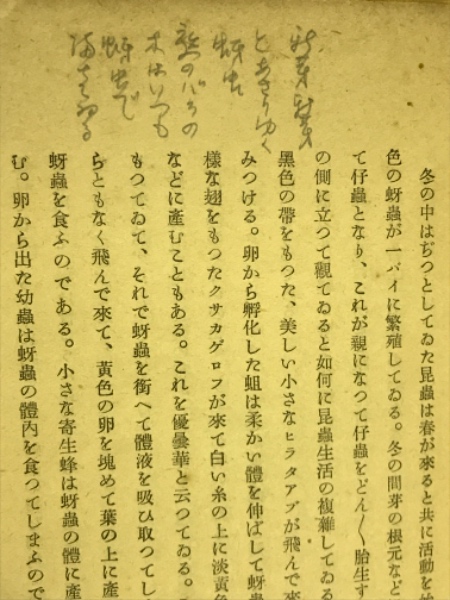 新芽新芽
とあさりゆく
蚜虫
庭のバラの
木はいつも
蚜虫で
冬の中はぢつとしてゐた昆蟲は春が來ると共に活動を
色の蚜蟲が一パイに繁殖してゐる。冬の間芽の根元など
て仔蟲となり、これが親になつて仔蟲をどん〱胎生す
の側に立つて觀てゐると如何に昆蟲生活の複雜してゐる
黑色の帶をもつた、美しい小さなヒラタアブが飛んで來
みつける。卵から孵化した蛆は柔かい體を伸ばして蚜蟲
樣な翅をもつたクサカゲロフが來て白い糸の上に淡黃色
などに產むこともある。これを優曇華と云つてゐる。
もつてゐて、それで蚜蟲を銜へて體液を吸ひ取つてし
らともなく飛んで來て、黃色の卵を塊めて葉の上に產
蚜蟲を食ふのである。小さな寄生蜂は蚜蟲の體に產
む。卵から出た幼蟲は蚜蟲の體內を食つてしまふので